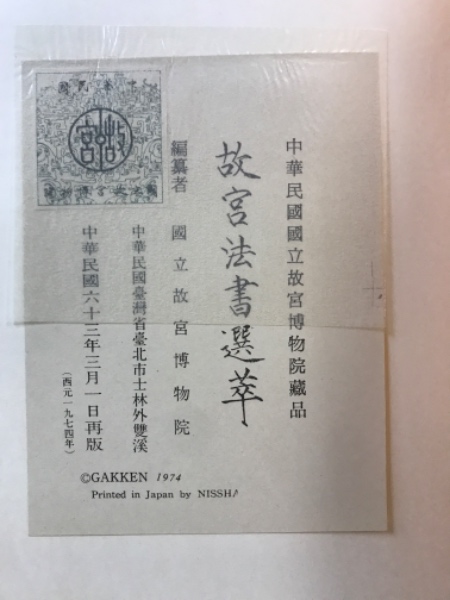 中華民國國立故宮博物院藏品
故宮法書選萃
編纂者 國立故宮博物院
中華民國臺灣省臺北市士林外雙溪
中華民國六十三年三月一日再版
(西元一九七四年)
中華民國
故宮
國立故宮博物院
©GAKKEN 1974
Printed in Japan by NISSHA